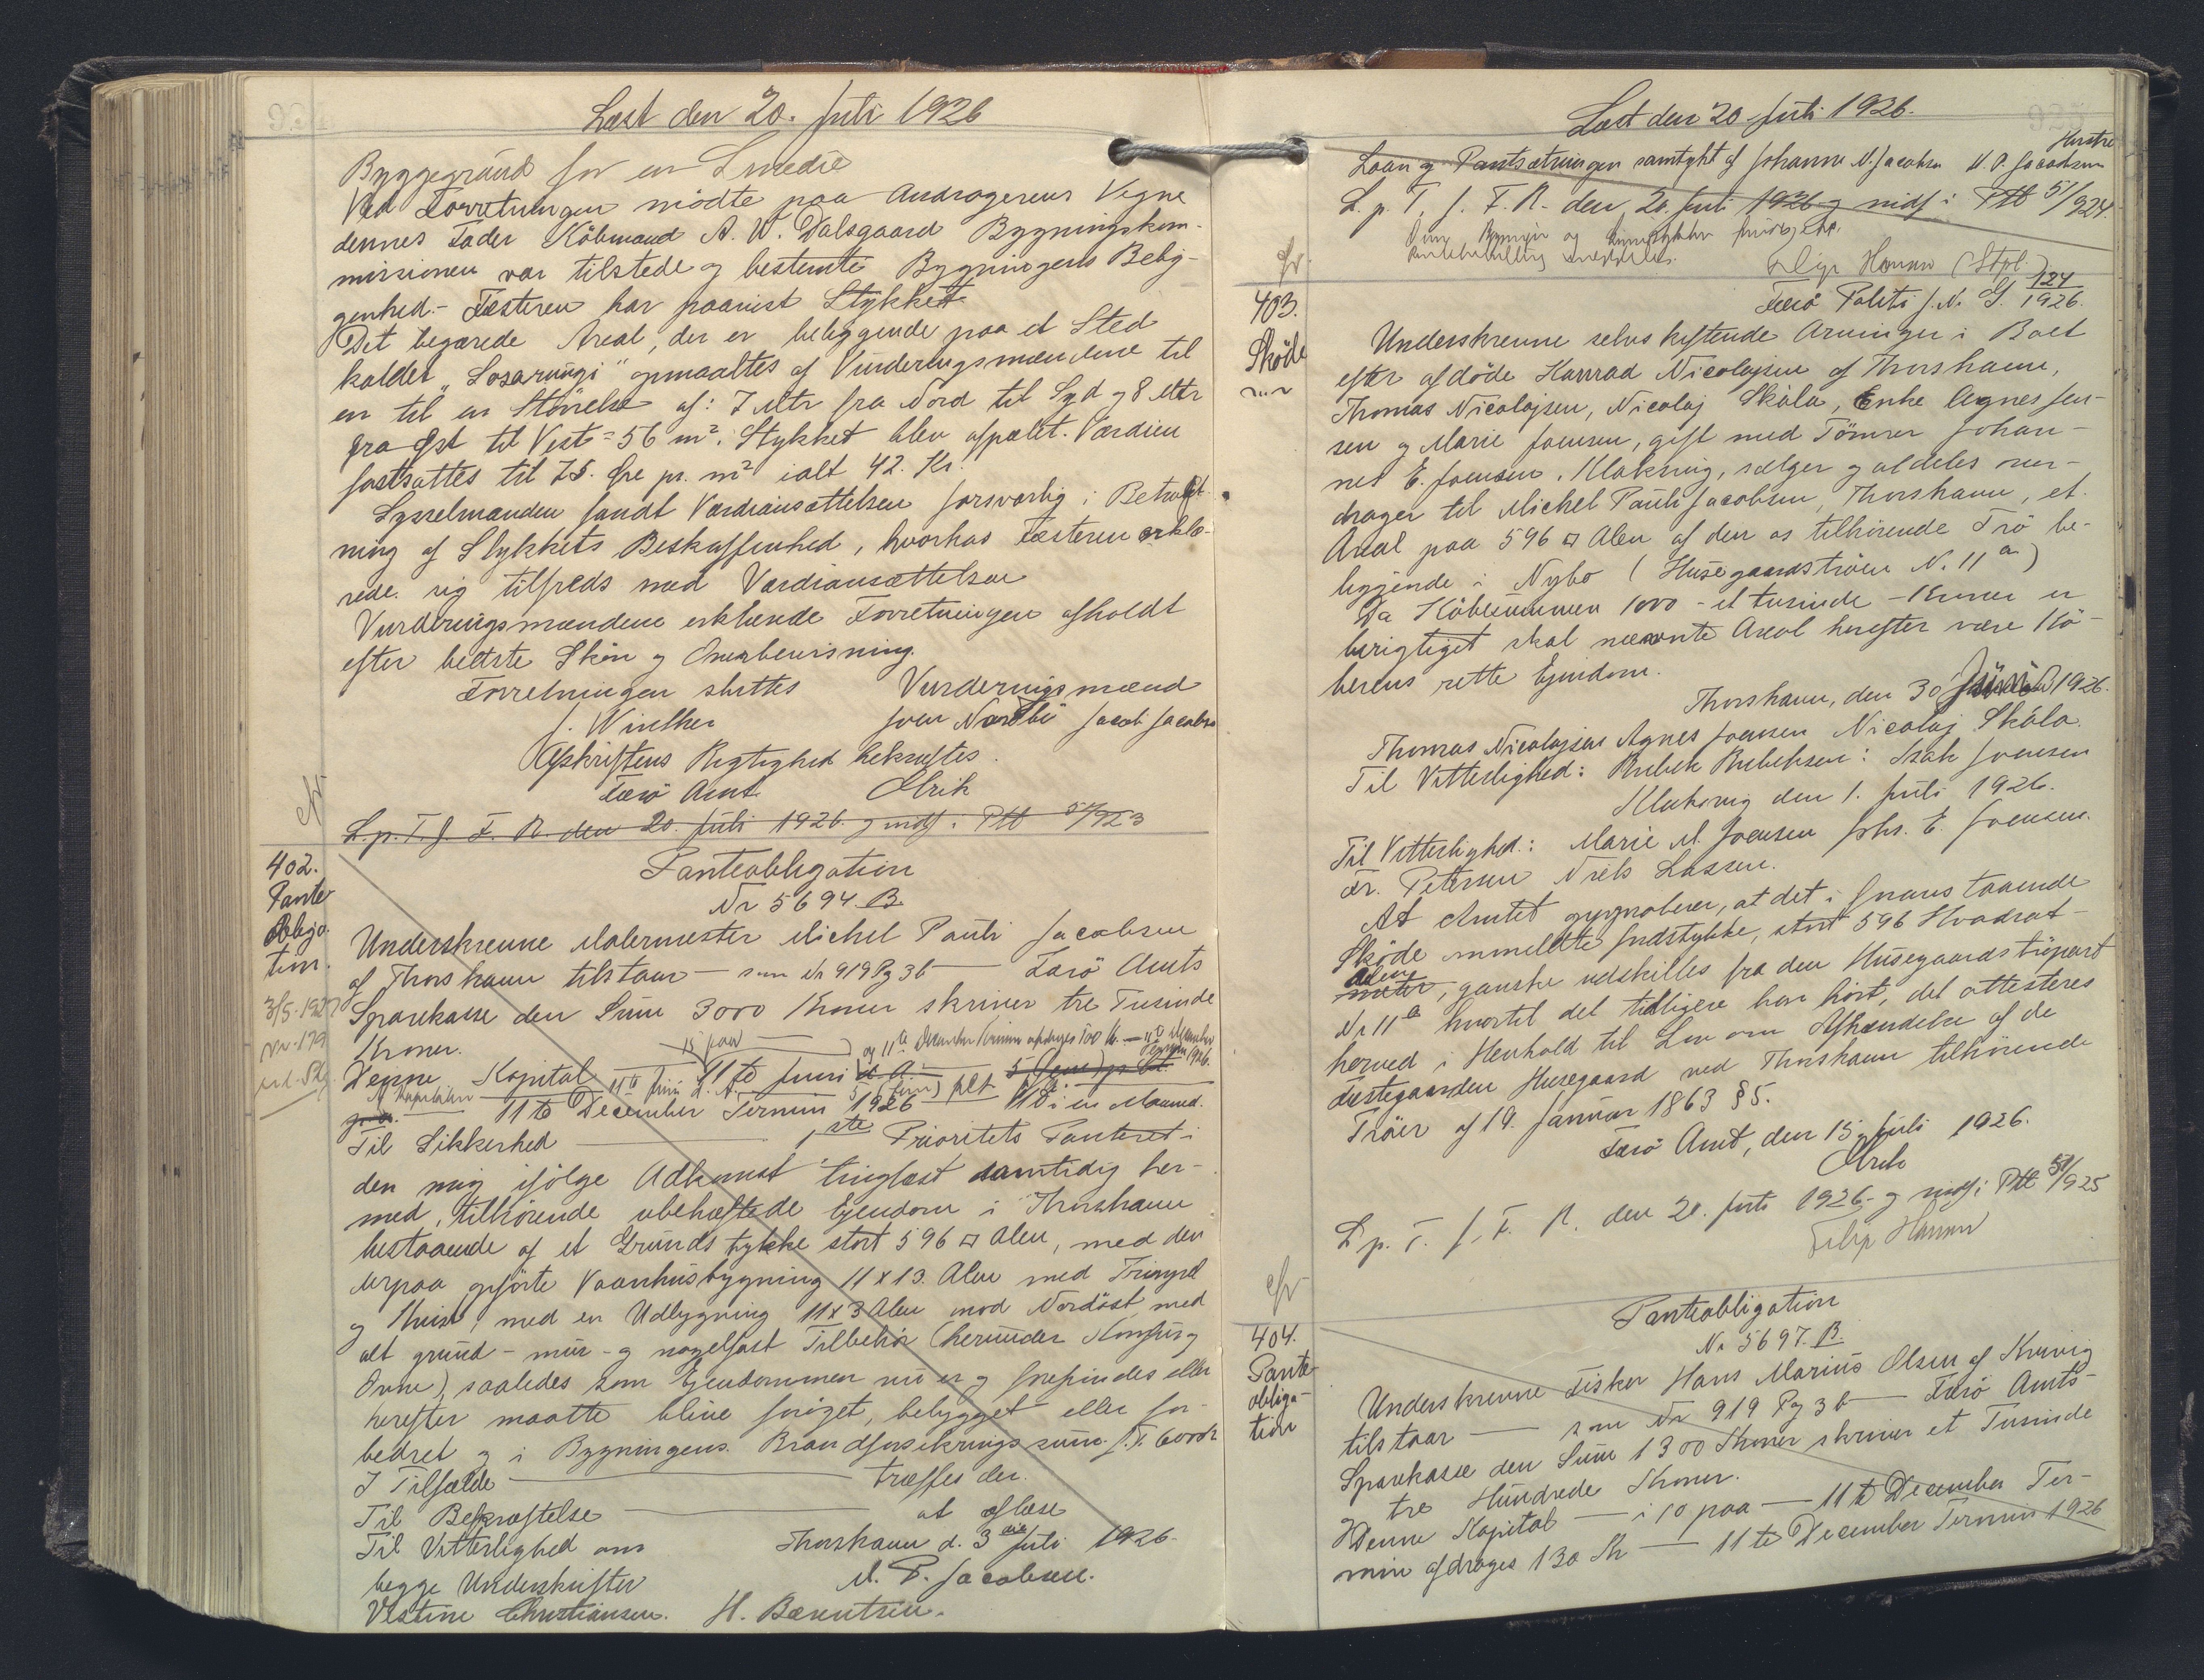 Læst den 20. Juli 1926
Byggegrund for en Smedie
Ved Forretningen mødte paa Andragerens Vegne
dennes Fader Købmand A. W. Dalsgaard Bygningskom-
missionen var tilstede og bestemte Bygningens Belig-
genhed. - Fæsteren har paavist Stykket
Det begærede Areal, der er beliggende paa et Sted
kaldet "Losarungi" opmaaltes af Vurderingsmændene til
en til en Størrelse af: 7 Mtr fra Nord til Syd og 8 Mtr
fra Øst til Vest = 56 m². Stykket blev afpælet. Værdien
fastsattes til 75. Øre pr. m² ialt 42. Kr.
Sysselmanden fandt Værdiansættelsen forsvarlig i Betragt-
ning af Stykkets Beskaffenhed, hvorhos Fæsteren erklæ-
rede sig tilfreds med Værdiansættelsen
Vurderingsmændene erklærede Forretningen afholdt
efter bedste Skøn og Overbevisning.
Forretningen sluttes Vurderingsmænd
J. Winther Joen Jacob Jacobsen
Afskriftens Rigtighed bekræftes.
Færø Amt. Elrik
L. p. T. f. F. R. den 20. Juli 1926 og indf i Ptt 51/923
402.
Pante
obliga-
tion.
3/5. 1927
Nr. 179
Panteobligation
Nr 5694 B.
Underskrevne Malermester Michel Pauli Jacobsen
af Thorshavn tilstaar - som Nr 919 Pg 36 - Færø Amts
Sparekasse den Sum 3000 Kroner skriver tre Tusinde
Kroner.
Denne Kapital 11te Juni
11te December Termin 1926
Til Sikkerhed 1ste Prioritets Panteret i
den mig ifølge Adkomst tinglæst samtidig her-
med, tilhørende ubehæftede Ejendom i Thorshavn
bestaaende af et Grundstykke stort 596 □ Alen, med den
derpaa opførte Vaanhusbygning 11 x 13. Alen med Trempel
og Kvist, med en Udbygning 11 x 3 Alen mod Nordøst med
alt grund- mur- og nagelfast Tilbehør (herunder Komfur og
Ovne), saaledes som Ejendommen nu er og forefindes eller
herefter maatte blive forøget, bebygget eller for-
bedret og i Bygningens Brandforsikringssum f. T. 6000 Kr
I Tilfælde træffes der.
Til Bekræftelse at aflæse
Til Vitterlighed om Thorshavn d. 3die Juli 1926.
begge Underskrifter M. P. Jacobsen.
Vestine Christiansen. H. Bærentsen.
Læst den 20 Juli 1926.
Laan og Pantsætningen samtykt af Johanne N. Jacobsen Hustru M. P. Jacobsen
L. p. T. f. F. R. den 20. Juli 1926 og indf i Ptt 51/924.
403.
Skøde
Færø Politi J. N. G. 124/1926.
Underskrevne selvskiftende Arvinger i Boet
efter afdøde Hanrad Nicolajsen af Thorshavn,
Thomas Nicolajsen, Nicolaj Skála, Enke Agnes Joen-
sen og Marie Joensen, gift med Tømrer Johan-
nes E. Joensen, Klaksvig, sælger og aldeles over-
drager til Michel Pauli Jacobsen, Thorshavn, et
Areal paa 596 □ Alen af den os tilhørende Trø be-
liggende i Nybø (Husegaardstrøen N. 11a)
Da Købesummen 1000 - et tusinde - Kroner er
berigtiget skal nævnte Areal herefter være Kø-
berens rette Ejendom.
Thorshavn, den 30 Juni 1926.
Thomas Nicolajsen Agnes Joensen Nicolaj Skála.
Til Vitterlighed: Rubek Rubeksen: Isak Joensen
Klaksvig den 1. Juli 1926.
Til Vitterlighed: Marie M. Joensen Johs. E. Joensen.
Fr. Petersen Niels Lassen.
At Amtet approberer, at det i foranstaaende
Skøde ommeldte Jordstykke, stort 596 Kvadrat-
alen, ganske udskilles fra den Husegaards trøpart
Nr 11a hvortil det tidligere har hørt, det attesteres
herved i Henhold til Lov om Afhændelse af de
Fæstegaarden Husegaard ved Thorshavn tilhørende
Trøer af 19. Januar 1863 § 5.
Færø Amt, den 15. Juli 1926.
Elrik
L. p. T. f. F. R. den 20. Juli 1926 og indf i Ptt 51/925
404.
Pante-
obliga-
tion
Panteobligation
Nr 5697. B.
Underskrevne Fisker Hans Marius Olsen af Kvivig
tilstaar - som Nr 919 Pg 36 - Færø Amts-
Sparekasse den Sum 1300 Kroner skriver et Tusinde
og tre Hundrede Kroner.
Denne Kapital - i 10 paa - 11te December Ter-
min afdrages 130 Kr - 11te December Termin 1926